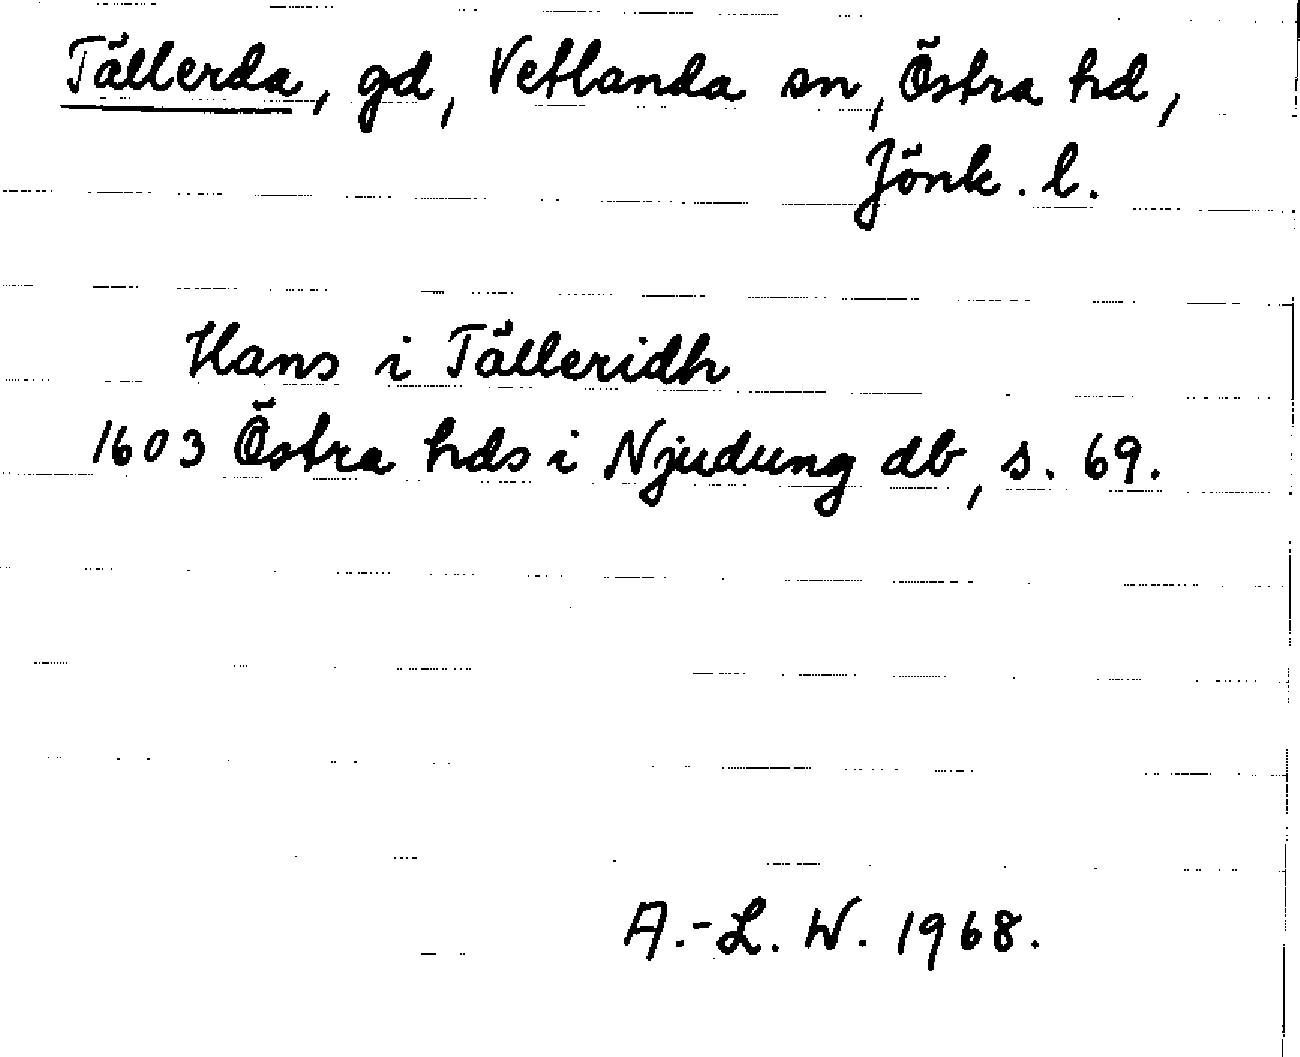 Tällerda, gd, Vetlanda sn, Östra hd,
Jönk. l.
Hans i Tälleridh
1603 Östra hds i Njudung db, s. 69.
A.-L. W. 1968.